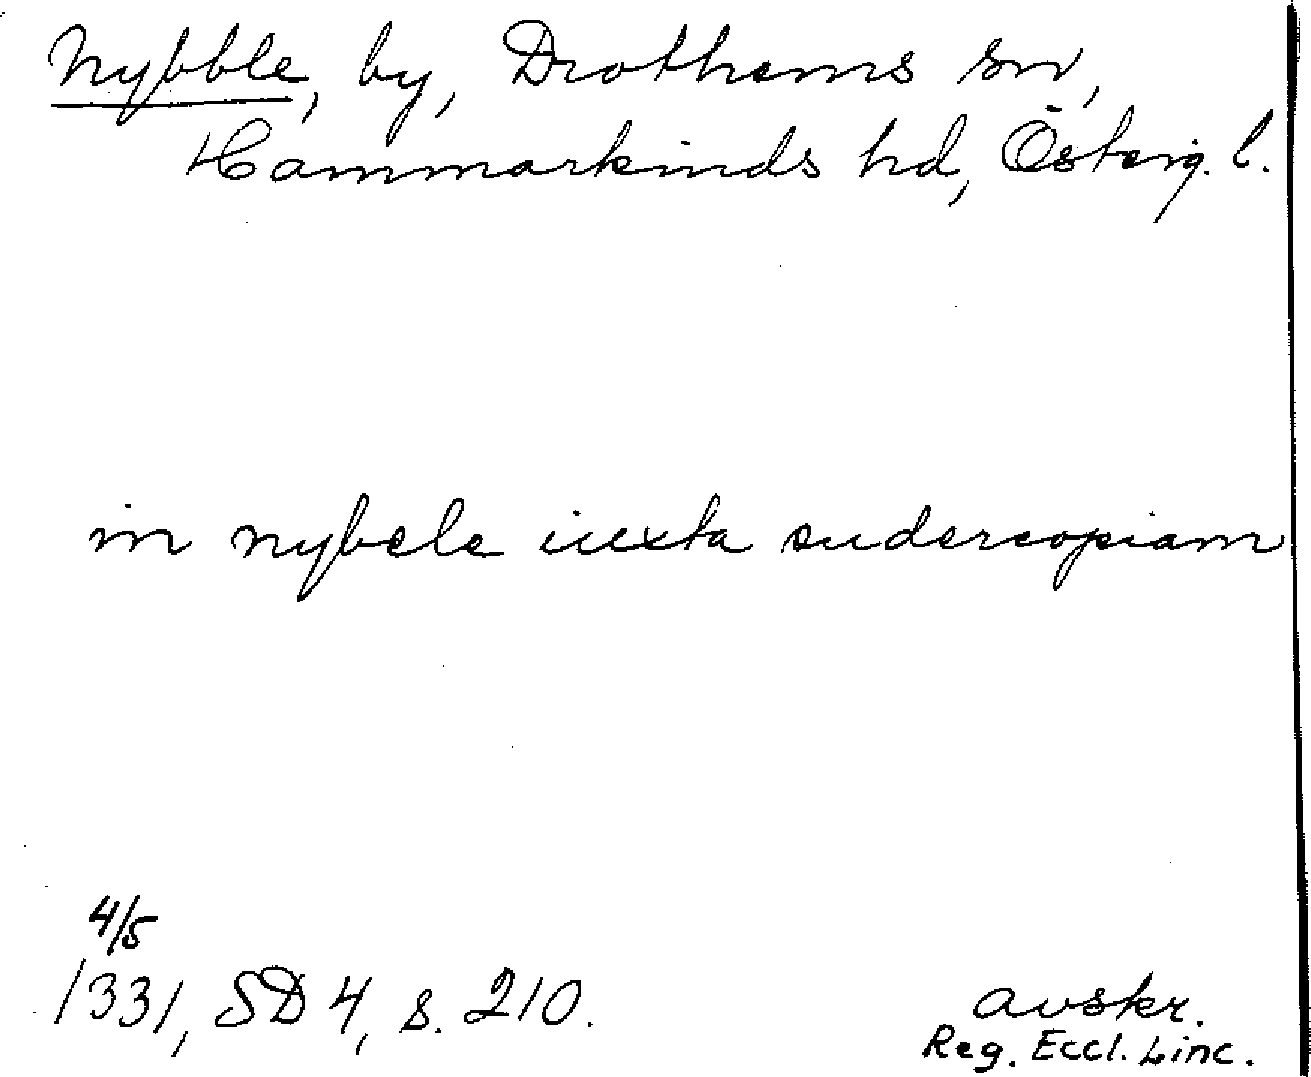 Nybble, by, Drothems sn,
Hammarkinds hd, Österg. l.
in nybele iuxta sudercopiam
4/5
1331, SD 4, s. 210.
avskr.
Reg. Eccl. Linc.